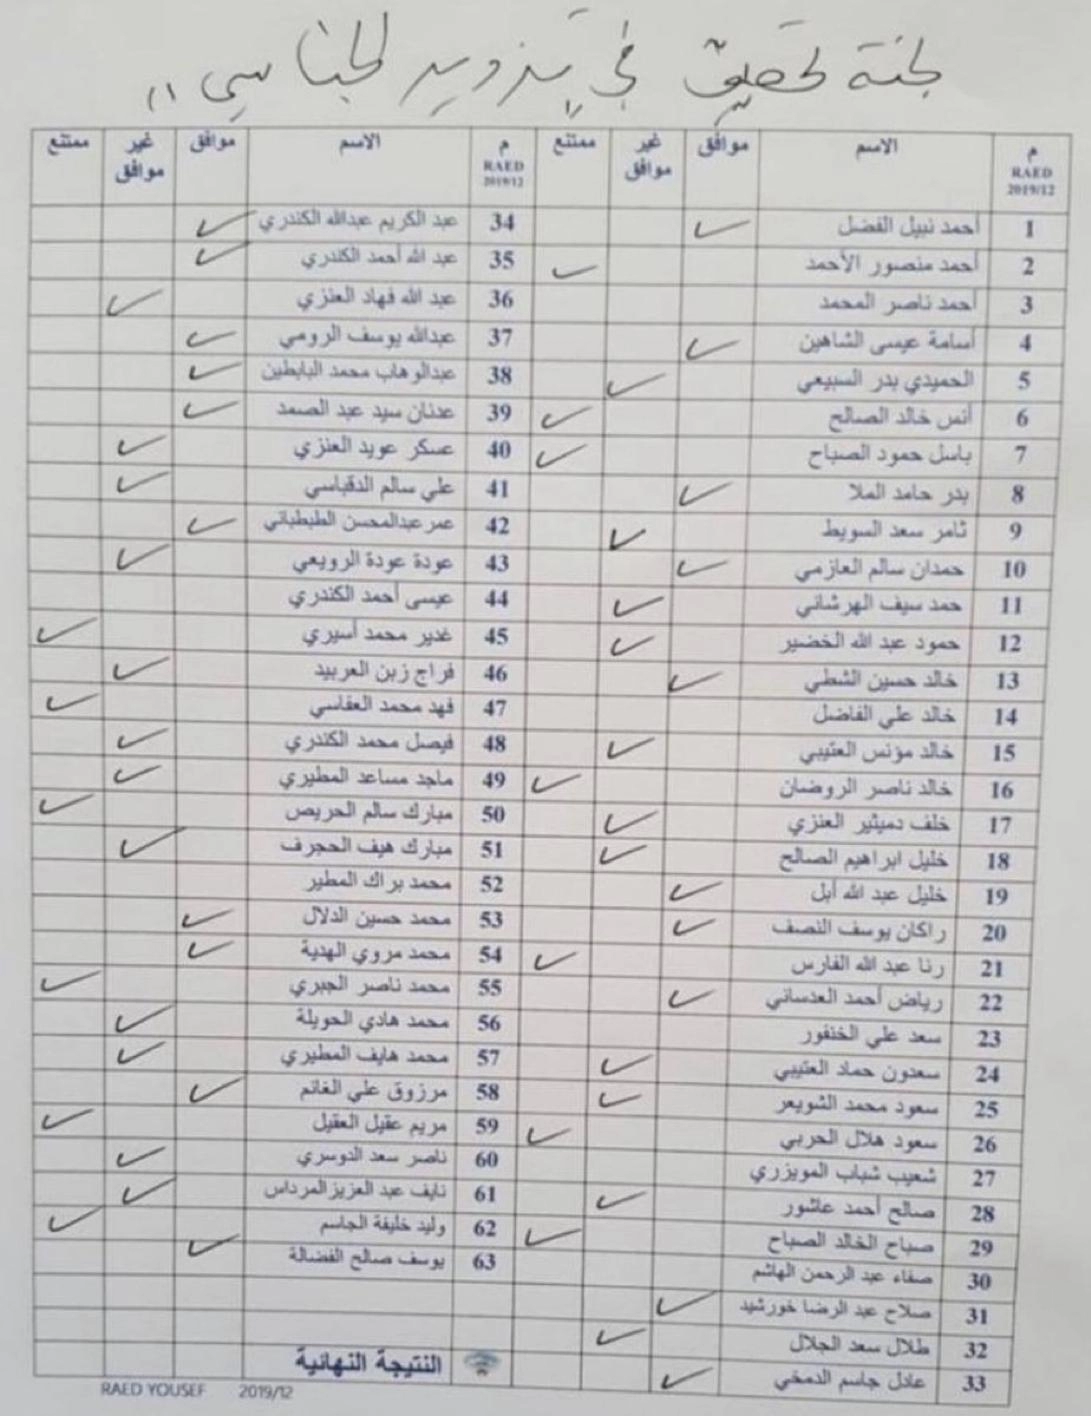 لجنة تحقيق في تزوير الجناسي !!
م RAED 2019/12 الاسم موافق غير موافق ممتنع
1 أحمد نبيل الفضل ✓
2 أحمد منصور الأحمد ✓
3 أحمد ناصر المحمد
4 أسامة عيسى الشاهين ✓
5 الحميدي بدر السبيعي ✓
6 أنس خالد الصالح ✓
7 باسل حمود الصباح ✓
8 بدر حامد الملا ✓
9 ثامر سعد السويط ✓
10 حمدان سالم العازمي ✓
11 حمد سيف الهرشاني ✓
12 حمود عبد الله الخضير ✓
13 خالد حسين الشطي ✓
14 خالد علي الفاضل
15 خالد مؤنس العتيبي ✓
16 خالد ناصر الروضان ✓
17 خلف دميثير العنزي ✓
18 خليل ابراهيم الصالح ✓
19 خليل عبد الله أبل ✓
20 راكان يوسف النصف ✓
21 رنا عبد الله الفارس ✓
22 رياض أحمد العدساني ✓
23 سعد علي الخنفور
24 سعدون حماد العتيبي ✓
25 سعود محمد الشويعر ✓
26 سعود هلال الحربي ✓
27 شعيب شباب المويزري
28 صالح أحمد عاشور ✓
29 صباح الخالد الصباح ✓
30 صفاء عبد الرحمن الهاشم
31 صلاح عبد الرضا خورشيد ✓
32 طلال سعد الجلال ✓
33 عادل جاسم الدمخي ✓
م RAED 2019/12 الاسم موافق غير موافق ممتنع
34 عبد الكريم عبدالله الكندري ✓
35 عبد الله أحمد الكندري ✓
36 عبد الله فهاد العنزي ✓
37 عبدالله يوسف الرومي ✓
38 عبدالوهاب محمد البابطين ✓
39 عدنان سيد عبد الصمد ✓
40 عسكر عويد العنزي ✓
41 علي سالم الدقباسي ✓
42 عمر عبدالمحسن الطبطبائي ✓
43 عودة عودة الرويعي ✓
44 عيسى أحمد الكندري
45 غدير محمد أسيري ✓
46 فراج زبن العربيد ✓
47 فهد محمد العفاسي ✓
48 فيصل محمد الكندري ✓
49 ماجد مساعد المطيري ✓
50 مبارك سالم الحريص ✓
51 مبارك هيف الحجرف ✓
52 محمد براك المطير
53 محمد حسين الدلال ✓
54 محمد مروي الهدية ✓
55 محمد ناصر الجبري ✓
56 محمد هادي الحويلة ✓
57 محمد هايف المطيري ✓
58 مرزوق علي الغانم ✓
59 مريم عقيل العقيل ✓
60 ناصر سعد الدوسري ✓
61 نايف عبد العزيز المرداس ✓
62 وليد خليفة الجاسم ✓
63 يوسف صالح الفضالة ✓
النتيجة النهائية
RAED YOUSEF 2019/12